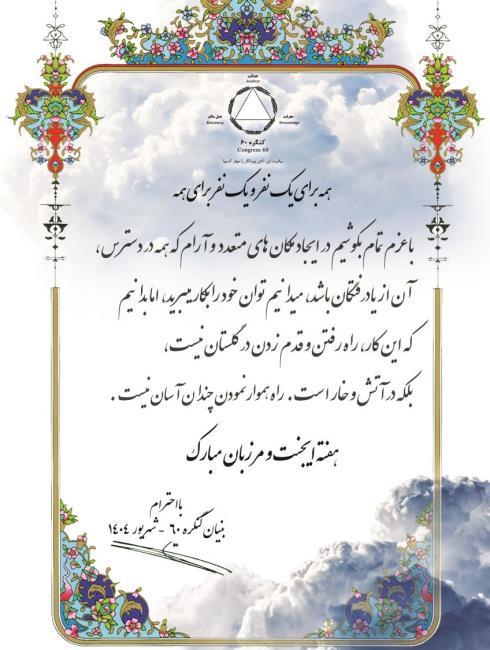 عدالت
Justice
عمل سالم
Decency
معرفت
Knowledge
کنگره ۶۰
Congress 60
بیائیید این آتش ویرانگر را مهار کنیم!
همه برای یک نفر و یک نفر برای همه
با عزم تمام بکوشیم در ایجاد مکان های متعدد و آرام که همه در دسترس،
آن از یاد رفتگان باشد، میدانیم توان خود را بکار میبرید، اما بدانیم
که این کار، راه رفتن و قدم زدن در گلستان نیست،
بلکه در آتش و خار است. راه هموار نمودن چندان آسان نیست.
هفته ایجنت و مرزبان مبارک
با احترام
بنیان کنگره ۶۰ - شهریور ۱۴۰۴